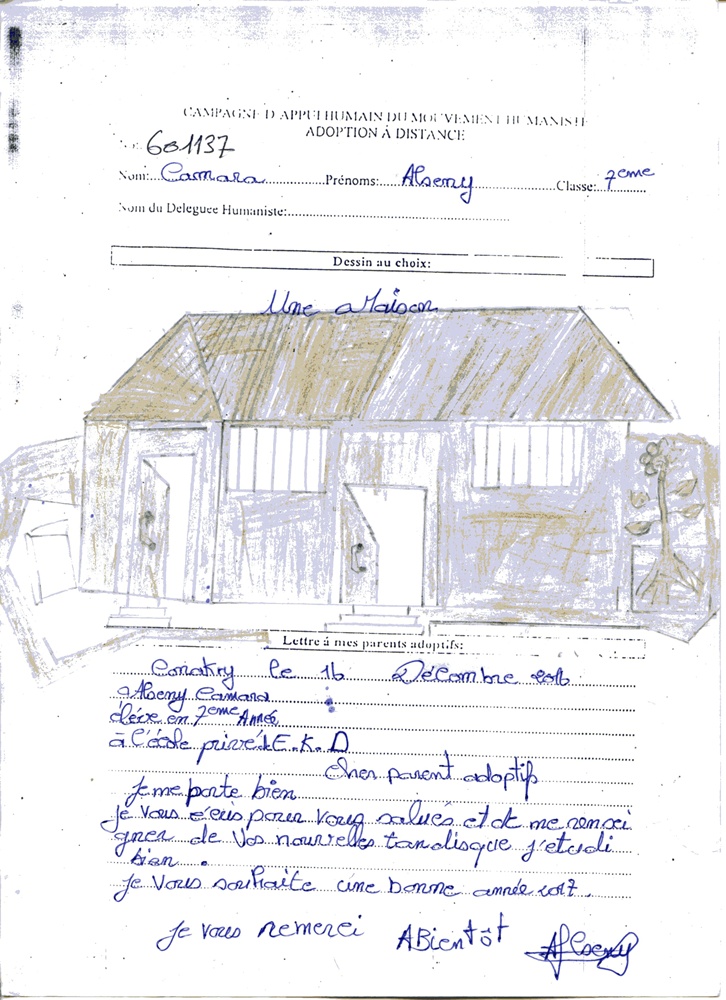 CAMPAGNE D'APPUI HUMAIN DU MOUVEMENT HUMANISTE
ADOPTION Á DISTANCE
601137
Nom: Camara Prénoms: Alseny Classe: 7eme
Nom du Deleguee Humaniste:
Dessin au choix:
Une Maison
Lettre á mes parents adoptifs:
Conakry le 16 Décembre 2016
Alseny Camara
élève en 7eme Année
à l'école privé E.K.D
Cher parent adoptif
Je me porte bien
Je vous écris pour vous salués et de me rensei
gner de vos nouvelles tandisque j'etudi
bien.
Je vous souhaite une bonne année 2017.
Je vous remerci ABientôt Alseny